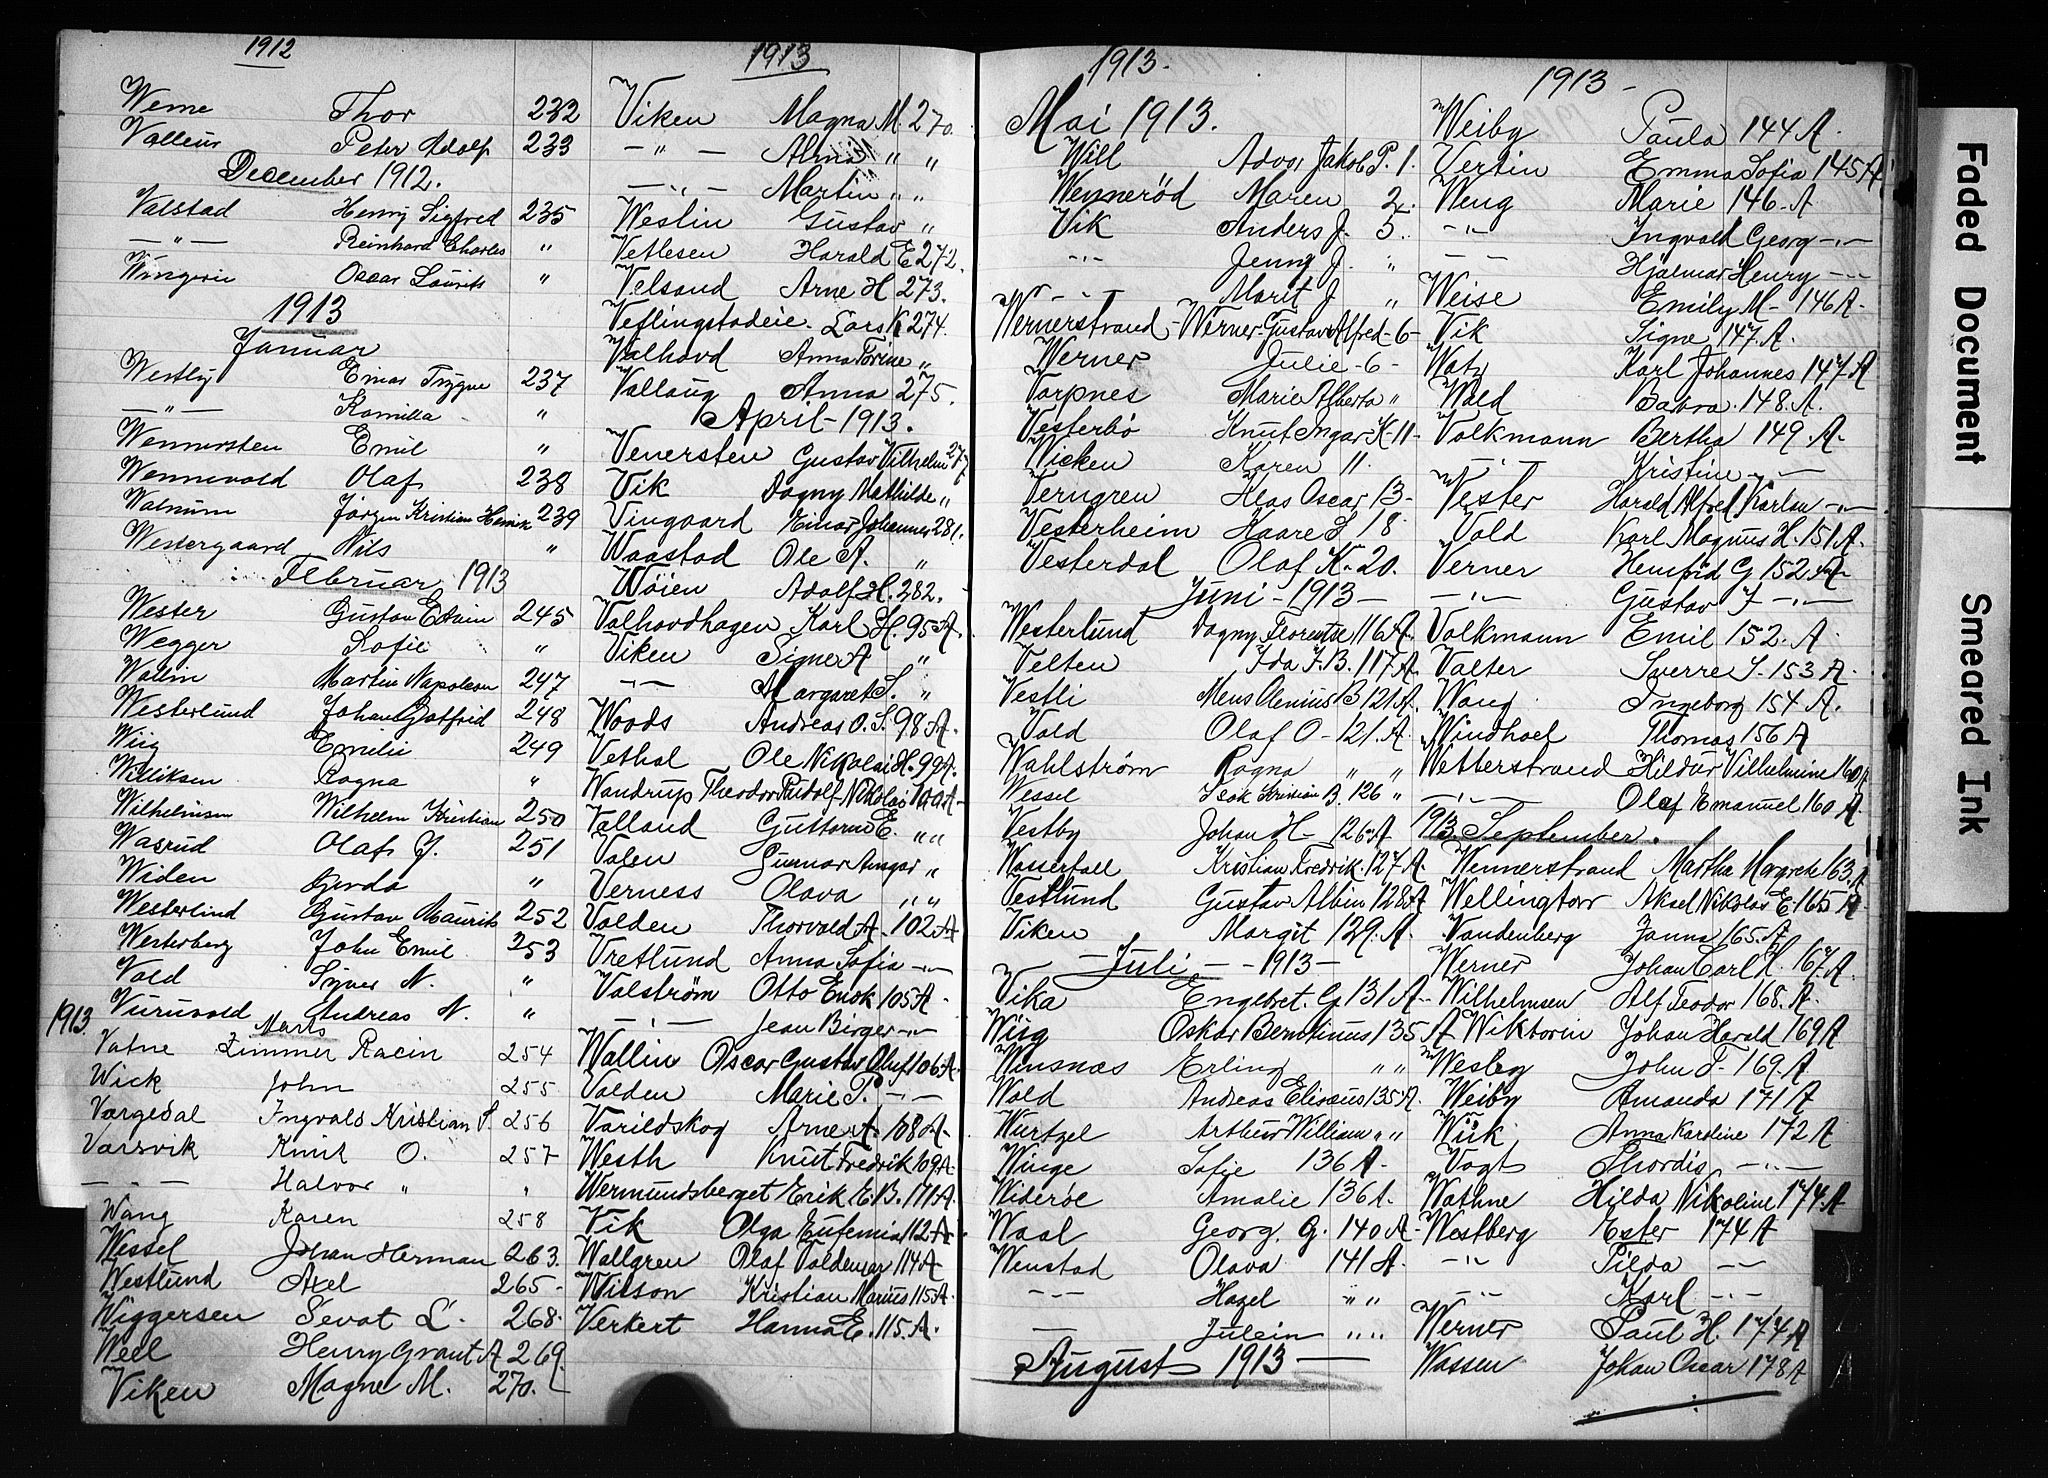 1912
Werne Thor 232
Valleur Peter Adolf 233
December 1912.
Valstad Henry Sigfred 235
— " — Reinhard Charles "
Oscar Lauritz "
1913
Januar
Westly Einar Trygve 237
— " — Kamilla "
Wennersten Emil "
Wennevold Olaf 238
Walnum Jörgen Kristian Henrik 239
Westergaard Nils "
Februar 1913
Wester Gustav Edvin 245
Wegger Sofie "
Wallin Martin Napoleon 247
Westerlund Johan Gotfrid 248
Wiig Emilie 249
Williksen Ragna "
Wilhelmsen Wilhelm Kristian 250
Wasrud Olaf J. 251
Widen Gerda "
Westerlind Gustav Maurits 252
Westerberg John Emil 253
Vold Syver N. "
Vuruvold Andreas N. "
1913 Marts
Vatne Zimmer Racin 254
Wick John 255
Værgedal Ingvald Kristian S. 256
Varsvik Knut O. 257
— " — Halvor " "
Wang Karen 258
Wessel Johan Herman 263.
Westlund Axel 265-
Wiggersen Sevat L. 268.
Weel Henry Grant A 269.
Viken Magne M. 270.
1913
Viken Magna M. 270.
— " — Alma " "
— " — Martin " "
Weslin Gustav "
Vetlesen Harald E 272.
Velsand Arne H 273.
Veflingstadeie. Lars K 274.
Valhovd Anna Torine "
Vallaug Anna 275.
April - 1913.
Venersten Gustav Vilhelm 277
Vik Dagny Mathilde "
Vingaard Einar Johannes 281.
Waastad Ole A. "
Wøien Adolf H. 282.
Valhovdhagen Karl H. 95 A.
Viken Signe A "
— — Margaret S. "
Woods Andreas O. S. 98 A.
Vethal Ole Nikolai H. 99 A.
Wandrup Theodor Rudolf Nikolai 100 A
Valland Guttorm E. " "
Valen Gunnar Ansgar "
Verness Olava " "
Valden Thorvald A. 102 A
Vretlund Anna Sofia — " —
Valström Otto Enok 105 A
— " — Jean Birger — " —
Wallin Oscar Gustav Oluf 106 A
Valden Marie P. — " —
Varildskog Arne A. 108 A
Westh Knut Fredrik 109 A
Wermundsberget Erik E. B. 111 A.
Vik Olga Eufemia 112 A
Wallgren Olaf Valdemar 114 A
Wilson Kristian Marius 115 A.
Verkert Hanna E. 115. A.
1913.
Mai 1913.
Will Advar Jakob P. 1.
Wennerød Maren 2.
Vik Anders J. 5.
— " — Jenny J. "
— " — Marit J "
Wernerstrand - Werner - Gustav Alfred - 6 -
Werner Julie - 6 -
Varpnes Marie Alberta "
Vesterbø Knut Ingar K - 11 -
Wicken Karen 11.
Verngren Klas Oscar 13 -
Vesterheim Haare S 18.
Vesterdal Olaf K - 20.
Juni - 1913 —
Westerlund Dagny Florentse 116 A.
Velten Ida J. B. 117 A.
Vestli Mens Olenius B 121 A.
Vold Olaf O - 121. A.
Wahlström Ragna " "
Wessel Isak Kristian B. 126 "
Vestby Johan H - 126 A
Wasserfall Kristian Fredrik. 127 A.
Vestlund Gustav Albin 128 A
Viken Margit 129. A.
— Juli — - 1913 —
Vika Engebret. G. 131 A.
Wiig Oskar Berntinus 135 A
Winsnæs Erling " "
Wold Andreas Elisæus 135 A.
Wurtzel Arthur William " "
Winge Sofie 136 A.
Widerøe Amalie 136 A.
Waal Georg. G. 140 A.
Wenstad Olava 141 A.
— " — Hazel " "
— Julein " "
August 1913 —
1913 -
Weiby Paula 144 A.
Vertin Emma Sofia 145 A
Weng Marie 146 A
— " — Ingvald Georg — " —
— — Hjalmar Henry — " —
Weise Emily M - 146 A.
Vik Signe 147. A.
Watz Karl Johannes 147 A
Wald Barbra. 148. A.
Volkmann Bertha 149. A.
— " — Kristine — " —
Vester Harald Alfred Karlsen — " —
Vold Karl Magnus H. 151 A.
Verner Hemfrid G 152 A
— " — Gustav J — " —
Volkmann Emil 152. A.
Valter Sverre S. 153 A.
Wang Ingeborg 154 A.
Windhoel Thomas 156 A
Wetterstrand Hildur Vilhelmine 160 A
— " — Olaf Emanuel 160. A.
1913. September.
Wennerstrand Martha Margrete 163. A
Wellington Aksel Nikolas E. 165 A
Vandenberg Janna 165. A
Werner Johan Carl H. 167. A
Wilhelmsen Alf Teodor 168. A.
Wiktorin Johan Harald 169 A
Wesley John F. 169. A.
Weiby Amanda 171 A
Wiik Anna Karoline 172 A
Vogt Thordis — " —
Wathne Hilda Nikoline 174 A
Westberg Ester 174 A
— " — Tilda — —
— " — Karl — " —
Werner Paul H. 174 A
Wassen Johan Oscar 178 A
Faded Document
Smeared Ink